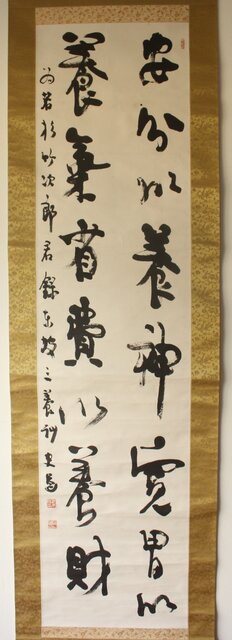 安分以養神寬胃以
養氣省費以養財
為若杉次郎君錄東坡三養訓